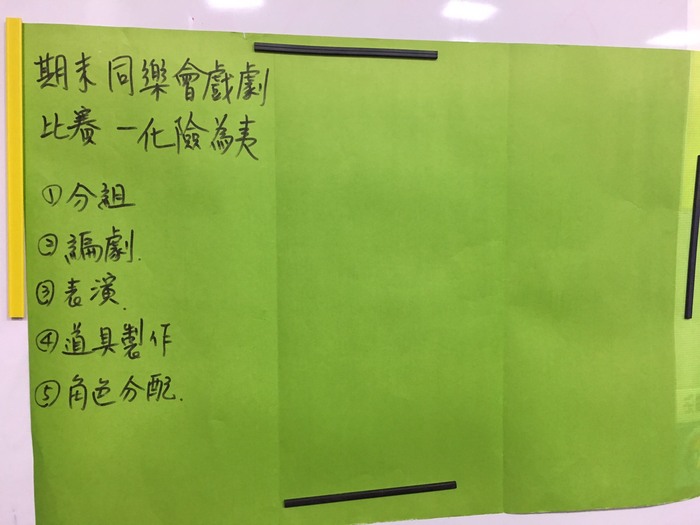 期末同樂會戲劇
比賽一化險為夷
①分組
②編劇.
③表演.
④道具製作
⑤角色分配.